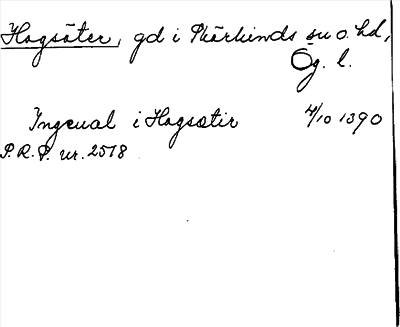 Hagsäter, gd i Skärkinds sn o. hd,
Ög. l.
Ingeual i Hagsætir 4/10 1390
P.R.P. nr. 2578